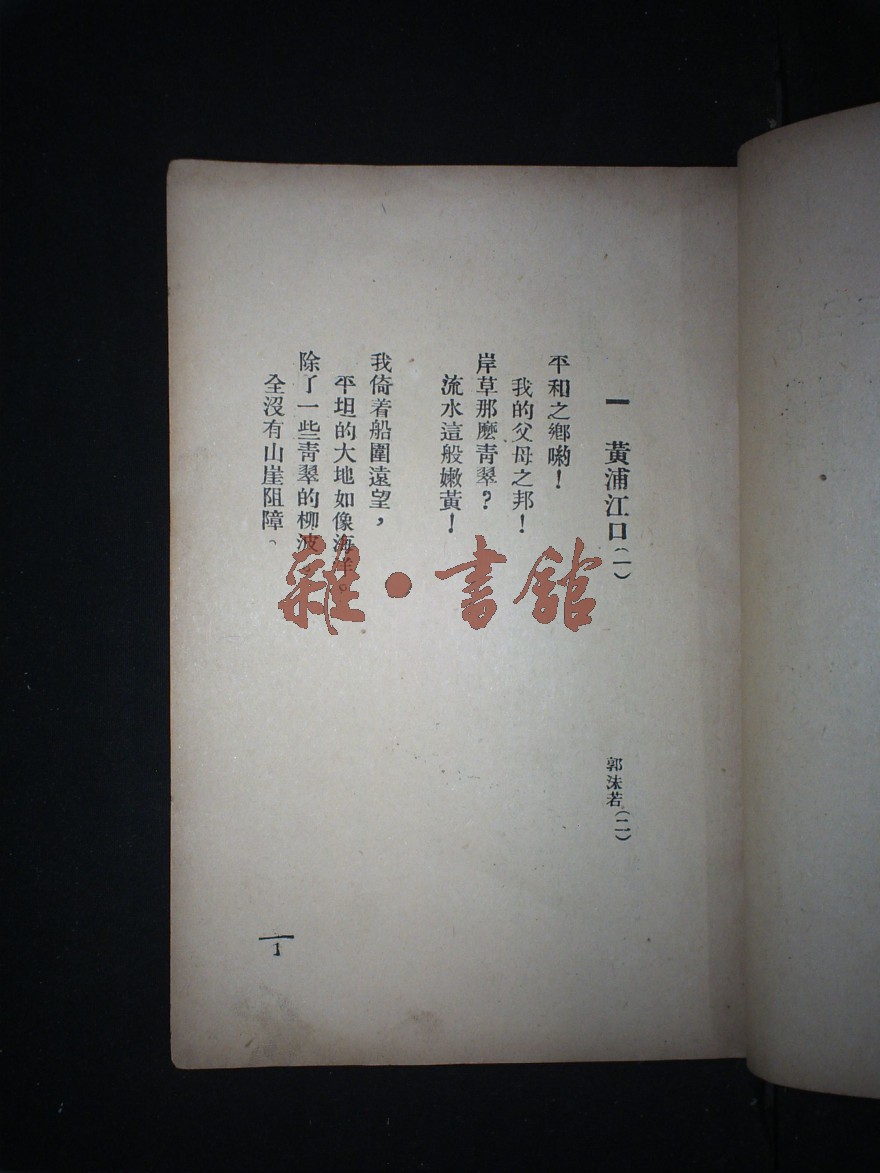 一 黃浦江口(一)
郭沫若(二)
平和之鄉喲！
我的父母之邦！
岸草那麽青翠？
流水這般嫩黃！
我倚着船圍遠望，
平坦的大地如像海洋。
除了一些青翠的柳波，
全沒有山崖阻障。
1
雜·書館